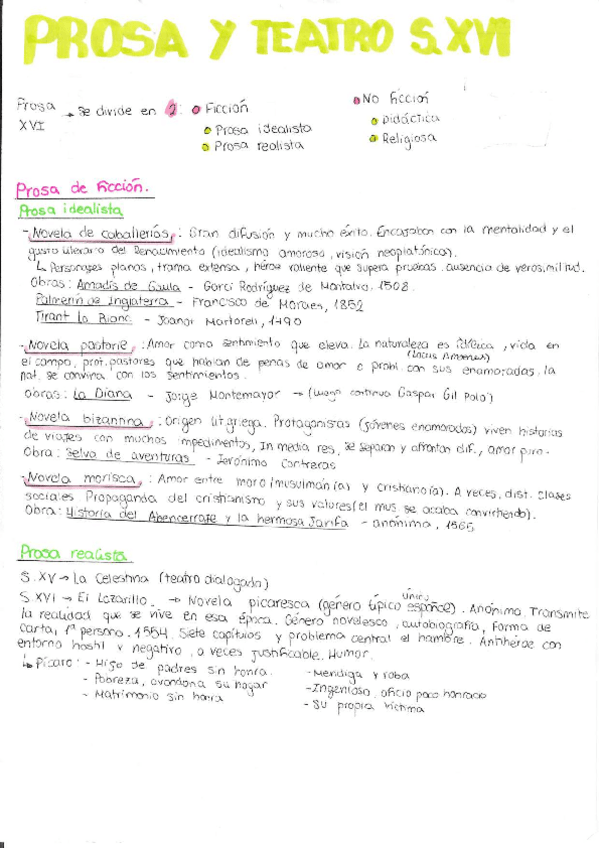 PROSA Y TEATRO S.XVI
Prosa XVI → se divide en 2: Ficción
Prosa idealista
Prosa realista
NO Ficción
Didáctica
Religiosa
Prosa de Ficción.
Prosa idealista
- Novela de caballerías: Gran difusión y mucho éxito. Encajaban con la mentalidad y el
gusto literario del Renacimiento (idealismo amoroso, visión neoplatónica).
↳ Personajes planos, trama extensa, héroe valiente que supera pruebas, ausencia de verosimilitud.
Obras: Amadís de Gaula - Garci Rodríguez de Montalvo. 1508.
Palmerín de Inglaterra - Francisco de Moraes, 1852
Tirant lo Blanc - Joanot Martorell, 1490
- Novela pastoril: Amor como sentimiento que eleva. La naturaleza es idílica, vida en
(Locus Amoenus)
el campo, prot. pastores que hablan de penas de amor o probl. con sus enamoradas. la
nat. se convina con los sentimientos.
Obras: La Diana - Jorge Montemayor → (luego continua Gaspar Gil Polo)
- Novela bizantina: Origen lit. griega. Protagonistas (jóvenes enamorados) viven historias
de viajes con muchos impedimentos, In media res, se separan y afrontan dif., amor puro.
Obra: Selva de aventuras - Jerónimo Contreras
- Novela morisca: Amor entre moro (musulmán(a) y cristiano(a). A veces, dist. clases
sociales. Propaganda del cristianismo y sus valores (el mus. se acaba convirtiendo).
Obra: Historia del Abencerrate y la hermosa Jarifa - anónima, 1565
Prosa realista
S. XV → La Celestina (teatro dialogado)
S. XVI → El Lazarillo. → Novela picaresca (género típico español). Anónima. Transmite
la realidad que se vive en esa época. Género novelesco, autobiografía, forma de
carta, 1ª persona. 1554. Siete capítulos y problema central el hambre. Antihéroe con
entorno hostil y negativo, a veces justificable. Humor.
↳ Pícaro: - Hijo de padres sin honra.
- Pobreza, avandona su hogar
- Matrimonio sin honra
- Mendiga y roba
- Ingenioso, oficio poco honrado
- Su propia víctima